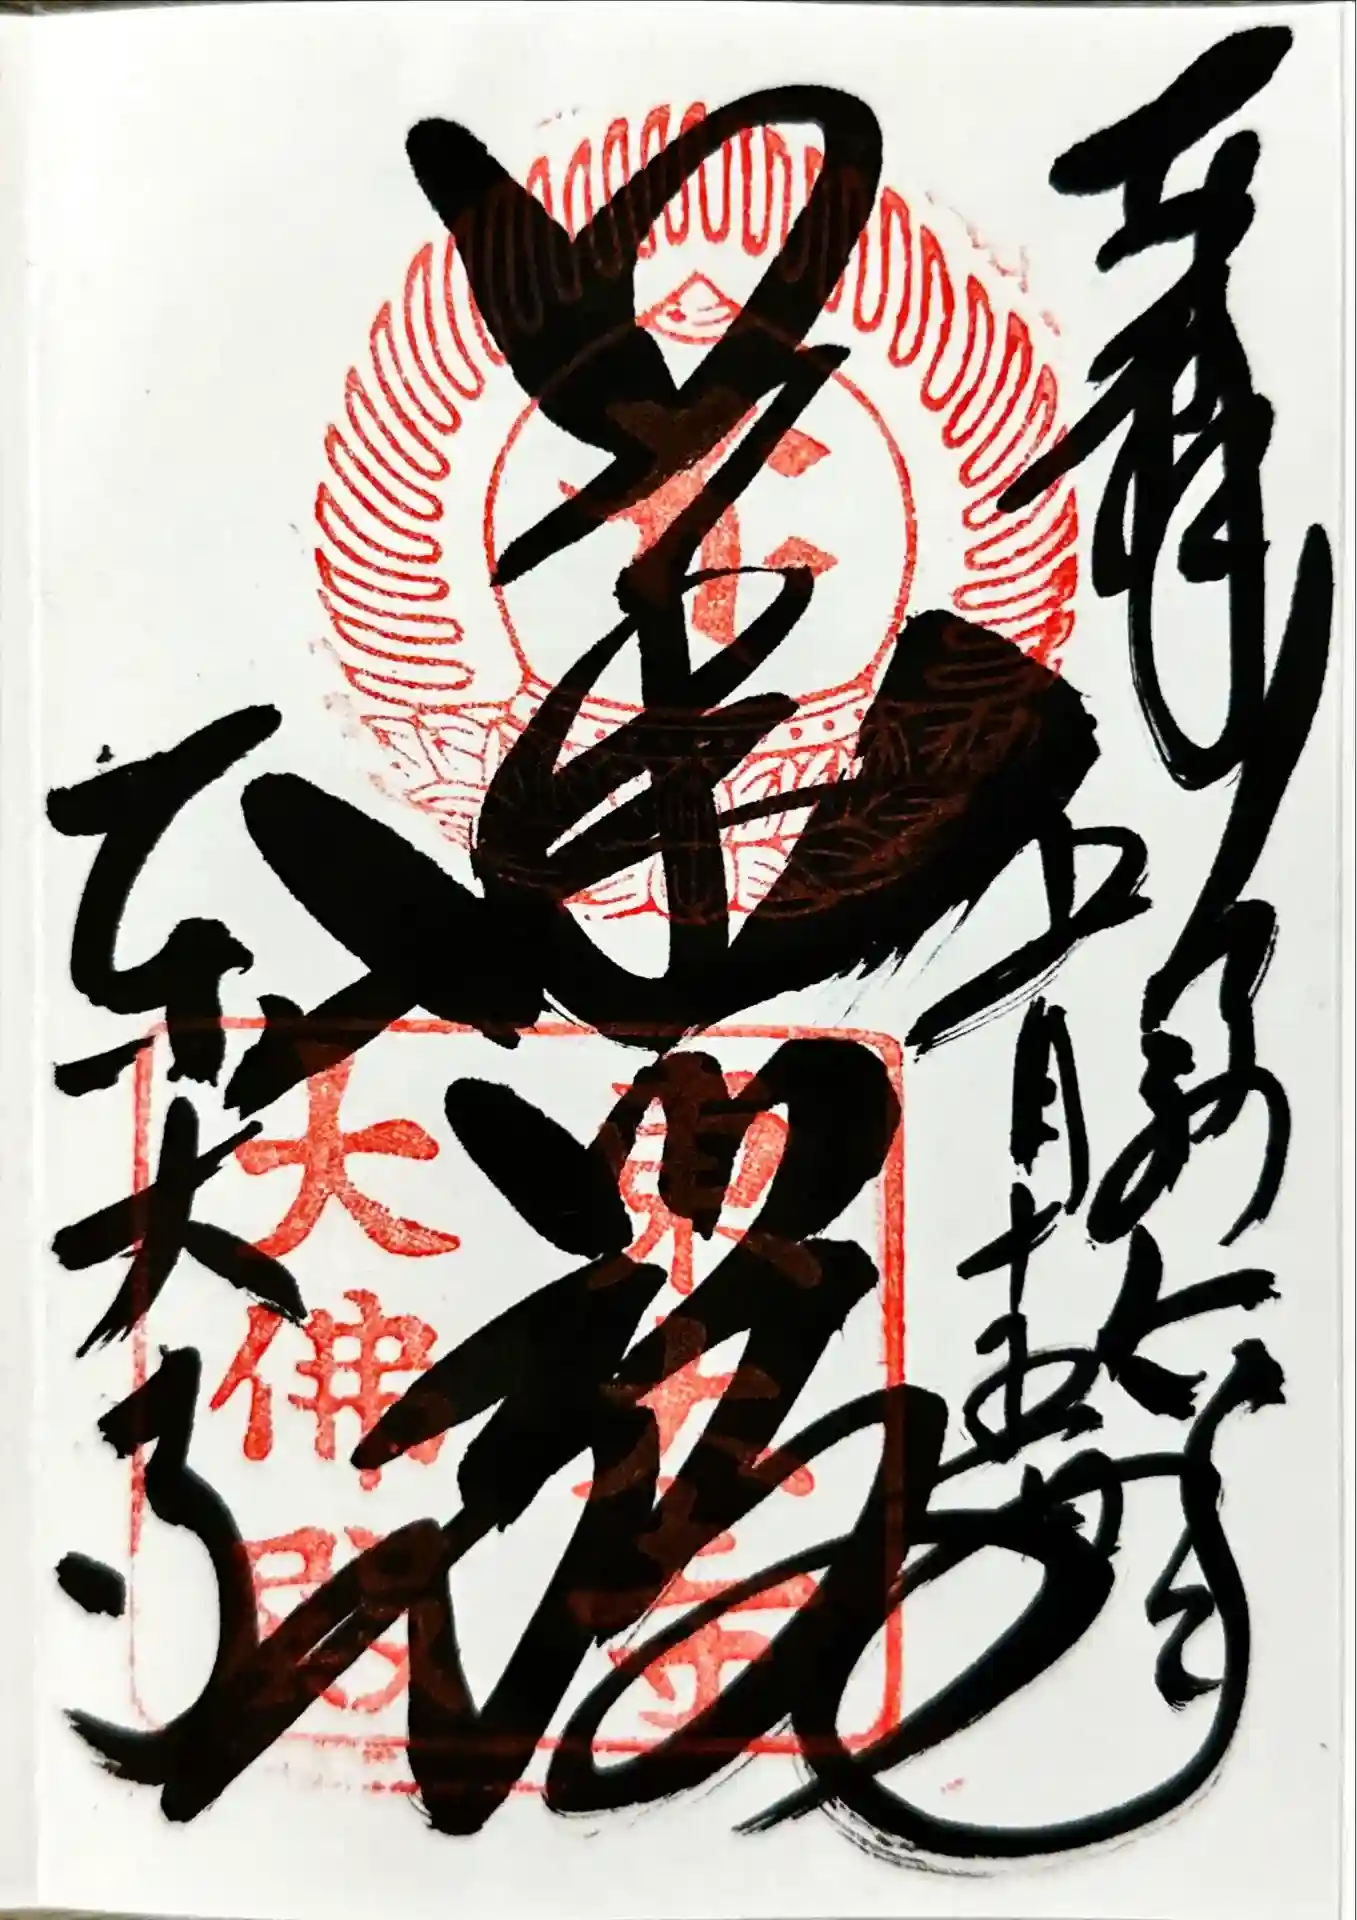 奉拝
令和七年
五月十五日
華厳
東大寺
東大寺
大佛殿